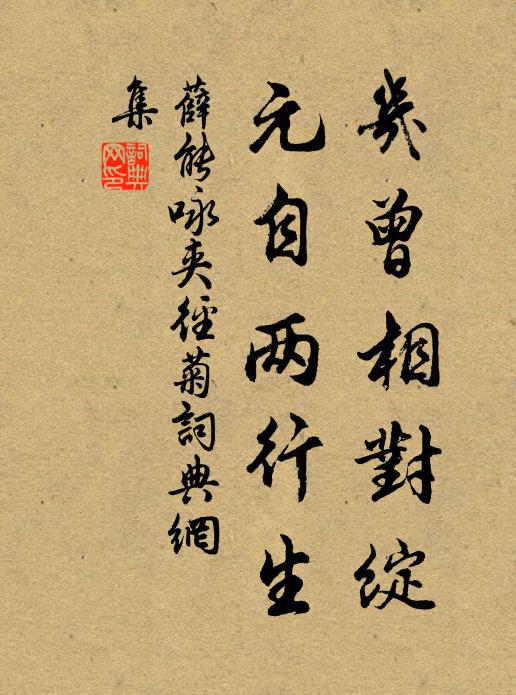 幾曾相對綻
元自两行生
薛能咏夾徑菊詞典網
集
詞典
网印